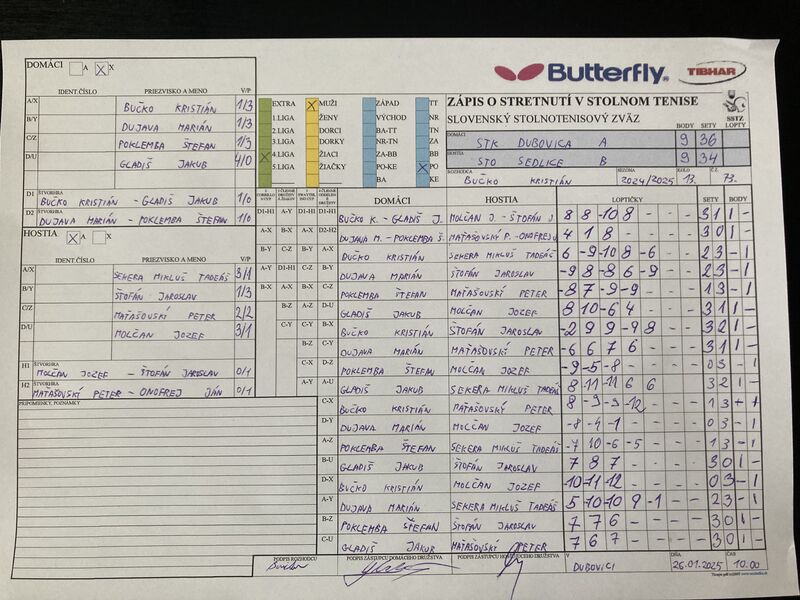 DOMÁCI A X
Butterfly® TIBHAR
IDENT.ČÍSLO PRIEZVISKO A MENO V/P
A/X BUČKO KRISTIÁN 1/3
B/Y DUJAVA MARIÁN 1/3
C/Z POKLEMBA ŠTEFAN 1/3
D/U GLADIŠ JAKUB 4/0
ŠTVORHRA
D1 BUČKO KRISTIÁN - GLADIŠ JAKUB 1/0
ŠTVORHRA
D2 DUJAVA MARIÁN - POKLEMBA ŠTEFAN 1/0
HOSTIA A X
IDENT.ČÍSLO PRIEZVISKO A MENO V/P
A/X SEKERA MIKLUŠ TADEÁŠ 3/1
B/Y ŠTOFÁN JAROSLAV 1/3
C/Z MAŤAŠOVSKÝ PETER 2/2
D/U MOLČAN JOZEF 3/1
ŠTVORHRA
H1 MOLČAN JOZEF - ŠTOFÁN JAROSLAV 0/1
ŠTVORHRA
H2 MAŤAŠOVSKÝ PETER - ONOFREJ JÁN 0/1
PRIPOMIENKY, POZNÁMKY
EXTRA MUŽI ZÁPAD TT
1.LIGA ŽENY VÝCHOD NR
2.LIGA DORCI BA-TT TN
3.LIGA DORKY NR-TN ZA
4.LIGA ŽIACI ZA-BB BB
5.LIGA ŽIAČKY PO-KE PO
BA KE
ZÁPIS O STRETNUTÍ V STOLNOM TENISE
SLOVENSKÝ STOLNOTENISOVÝ ZVÄZ
SSTZ
BODY SETY LOPTY
DOMÁCI STK DUBOVICA A 9 36
HOSTIA STO SEDLICE B 9 34
ROZHODCA SEZÓNA KOLO Č.
BUČKO KRISTIÁN 2024/2025 13. 73.
DOMÁCI HOSTIA LOPTIČKY SETY BODY
D1-H1 A-Y D1-H1 D1-H1 BUČKO K. - GLADIŠ J. MOLČAN J. - ŠTOFÁN J. 8 8 -10 8 - - - 3 1 1 -
A-X B-X A-X D2-H2 DUJAVA M. - POKLEMBA Š. MAŤAŠOVSKÝ P. - ONOFREJ J. 4 1 8 - - - - 3 0 1 -
B-Y C-Z B-Y A-X BUČKO KRISTIÁN SEKERA MIKLUŠ TADEÁŠ 6 -9 -10 8 -6 - - 2 3 - 1
A-Y D1-H1 C-Z B-Y DUJAVA MARIÁN ŠTOFÁN JAROSLAV -9 8 -8 6 -9 - - 2 3 - 1
B-X A-X B-X C-Z POKLEMBA ŠTEFAN MAŤAŠOVSKÝ PETER -8 7 -9 -9 - - - 1 3 - 1
B-Z A-Z D-U GLADIŠ JAKUB MOLČAN JOZEF 8 10 -6 4 - - - 3 1 1 -
C-Y C-Y B-X BUČKO KRISTIÁN ŠTOFÁN JAROSLAV -2 9 9 -9 8 - - 3 2 1 -
B-Z C-Y DUJAVA MARIÁN MAŤAŠOVSKÝ PETER -6 6 7 6 - - - 3 1 1 -
C-X D-Z POKLEMBA ŠTEFAN MOLČAN JOZEF -9 -5 -8 - - - - 0 3 - 1
A-Y A-U GLADIŠ JAKUB SEKERA MIKLUŠ TADEÁŠ -8 -11 11 6 6 - - 3 2 1 -
C-X BUČKO KRISTIÁN MAŤAŠOVSKÝ PETER 8 -9 -9 -12 - - - 1 3
D-Y DUJAVA MARIÁN MOLČAN JOZEF -8 -4 -1 - - - - 0 3 - 1
A-Z POKLEMBA ŠTEFAN SEKERA MIKLUŠ TADEÁŠ -7 10 -6 -5 - - - 1 3 - 1
B-U GLADIŠ JAKUB ŠTOFÁN JAROSLAV 7 8 7 - - - - 3 0 1 -
D-X BUČKO KRISTIÁN MOLČAN JOZEF -10 -11 -12 - - - - 0 3 - 1
A-Y DUJAVA MARIÁN SEKERA MIKLUŠ TADEÁŠ 5 -10 10 9 -1 - - 2 3 - 1
B-Z POKLEMBA ŠTEFAN ŠTOFÁN JAROSLAV 7 7 6 - - - - 3 0 1 -
C-U GLADIŠ JAKUB MAŤAŠOVSKÝ PETER 7 6 7 - - - - 3 0 1 -
PODPIS ROZHODCU PODPIS ZÁSTUPCU DOMÁCEHO DRUŽSTVA PODPIS ZÁSTUPCU HOSŤUJÚCEHO DRUŽSTVA V DUBOVICI DŇA 26.01.2025 ČAS 10.00